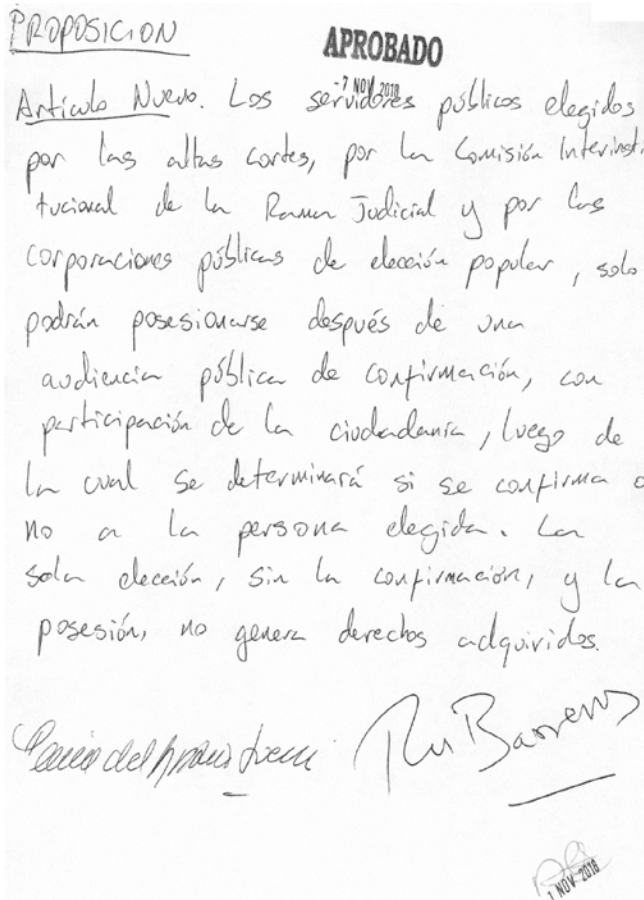 PROPOSICION
APROBADO
-7 NOV 2018
Artículo Nuevo. Los servidores públicos elegidos
por las altas cortes, por la Comisión Interinsti
tucional de la Rama Judicial y por las
corporaciones públicas de elección popular, solo
podrán posesionarse después de una
audiencia pública de confirmación, con
participación de la ciudadanía, luego de
la cual se determinará si se confirma o
no a la persona elegida. La
sola elección, sin la confirmación, y la
posesión, no genera derechos adquiridos.
Barreras
1 NOV 2018